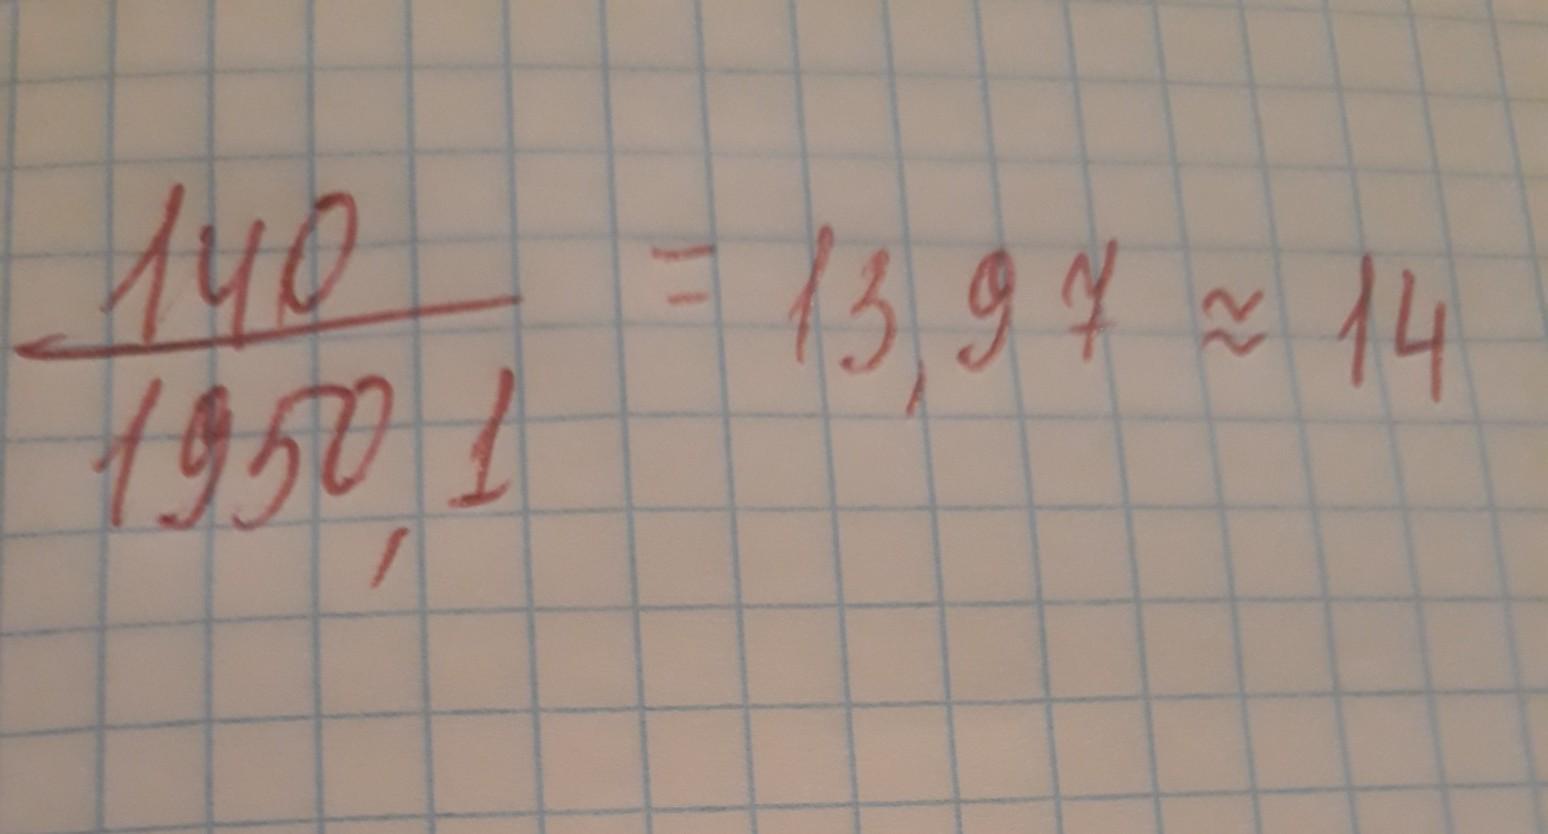 140
1950,1 = 13,97 ≈ 14